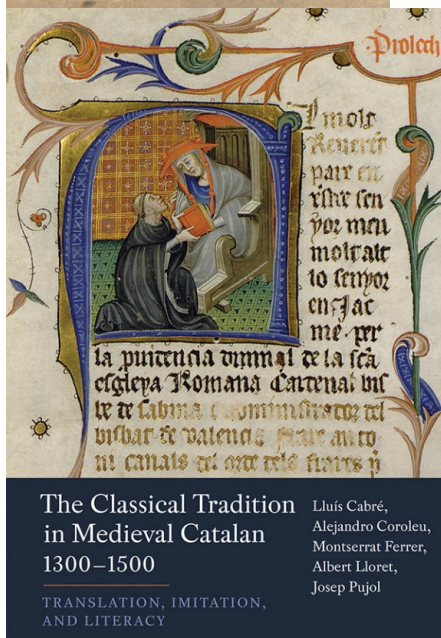 Prolech
Al molt
Reuerēt
pare en
xp̄ist sen
yor meu
molt alt
lo senyor
en Jac
me per
la prouidencia diuinal de la scā
esgleya Romana Cardenal bis
be de sabina e aministrador del
bisbat de valencia frare anto
ni canals del orde dels frares p̄
The Classical Tradition
in Medieval Catalan
1300–1500
TRANSLATION, IMITATION,
AND LITERACY
Lluís Cabré,
Alejandro Coroleu,
Montserrat Ferrer,
Albert Lloret,
Josep Pujol